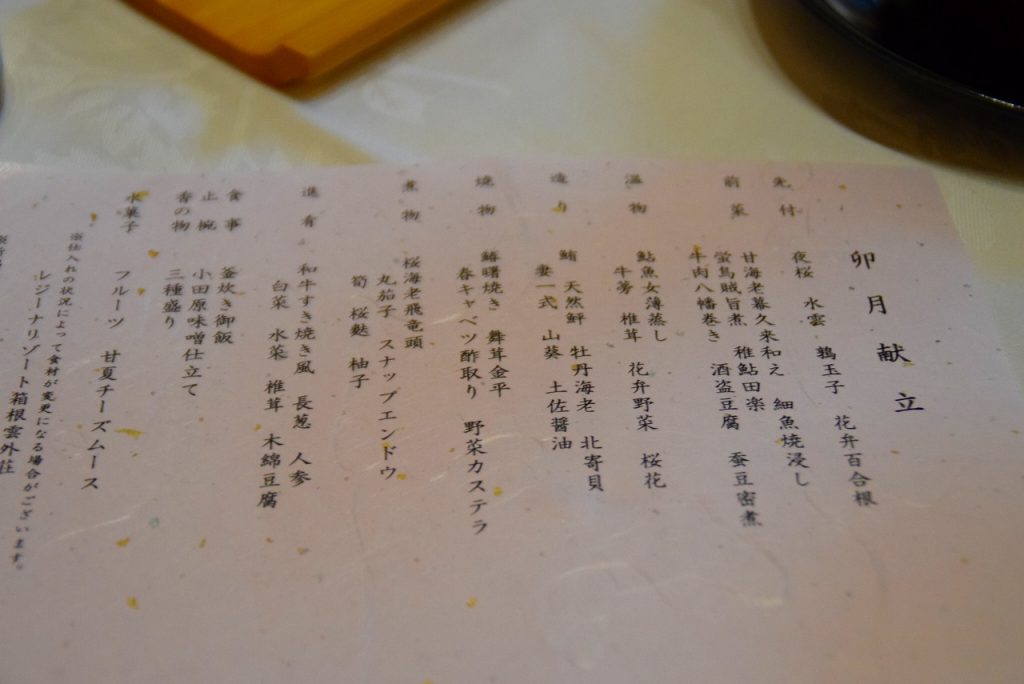 卯月献立
先付 夜桜 水雲 鶉玉子 花弁百合根
前菜 甘海老幕久来和え 細魚焼浸し
蛍烏賊旨煮 稚鮎田楽 蚕豆密煮
牛肉八幡巻き 酒盗豆腐
温物 鮎魚女薄蒸し 花弁野菜 桜花
牛蒡 椎茸
造り 鮪 天然鮃 牡丹海老 北寄貝
妻一式 山葵 土佐醤油
焼物 鰆曙焼き 舞茸金平
春キャベツ酢取り 野菜カステラ
煮物 桜海老飛竜頭
丸茄子 スナップエンドウ
筍 桜麩 柚子
進肴 和牛すき焼き風 長葱 人参
白菜 水菜 椎茸 木綿豆腐
食事 釜炊き御飯
止椀 小田原味噌仕立て
香の物 三種盛り
水菓子 フルーツ 甘夏チーズムース
※仕入れの状況によって食材が変更になる場合がございます。
レジーナリゾート箱根雲外荘